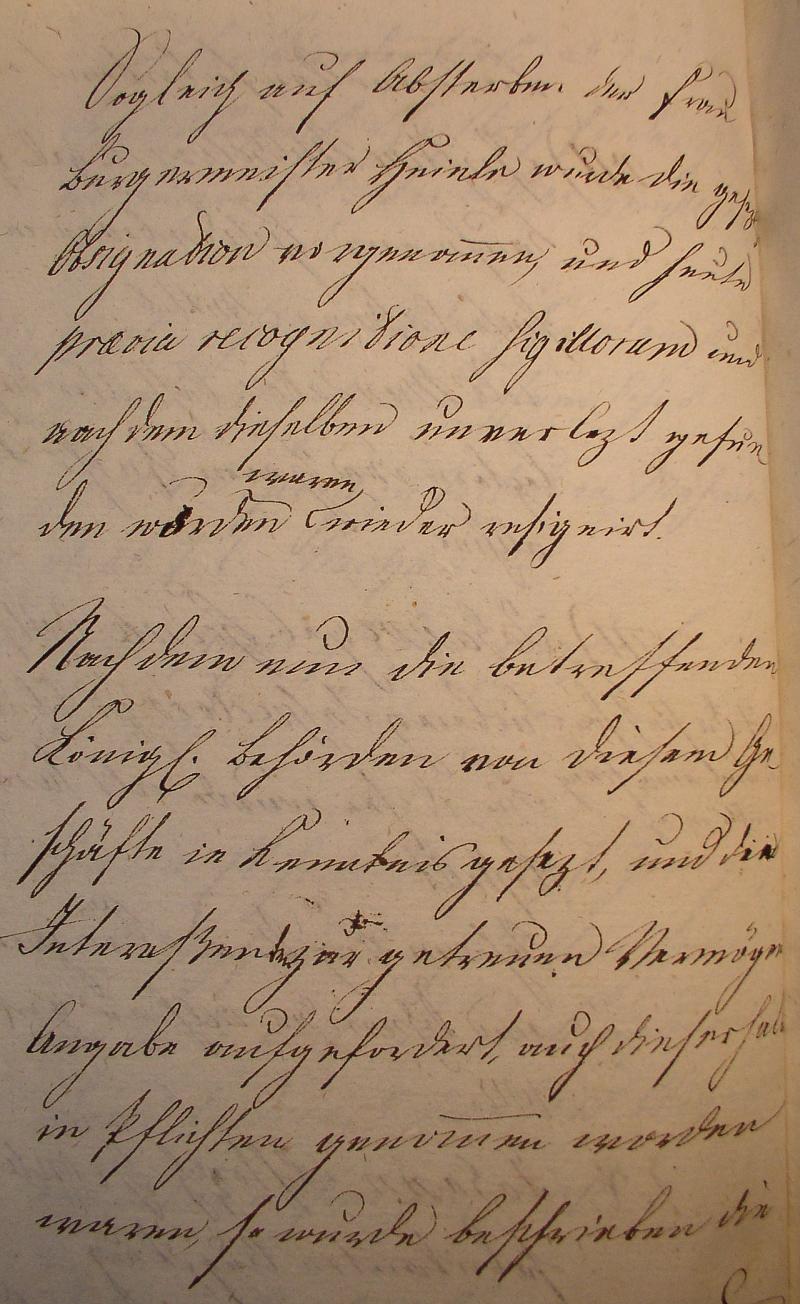 Sogleich auf Absterben der Frau
Bürgermeister Heinle wurde die
Obsignation vorgenom̅en, und heute
prævia recognitione Sigillorum und
nachdem dieselben unverlezt gefun
waren
den worden wieder resignirt.
Nachdem nun die betreffenden
Königl. Behörden von diesem Ge-
schäfte in Kenntnis gesezt, und die
Interessenten zur getreuen Vermögens
Angabe aufgefordert, auch dieserhalb
in Pflichten genom̅en worden
waren, so wurde beschrieben die